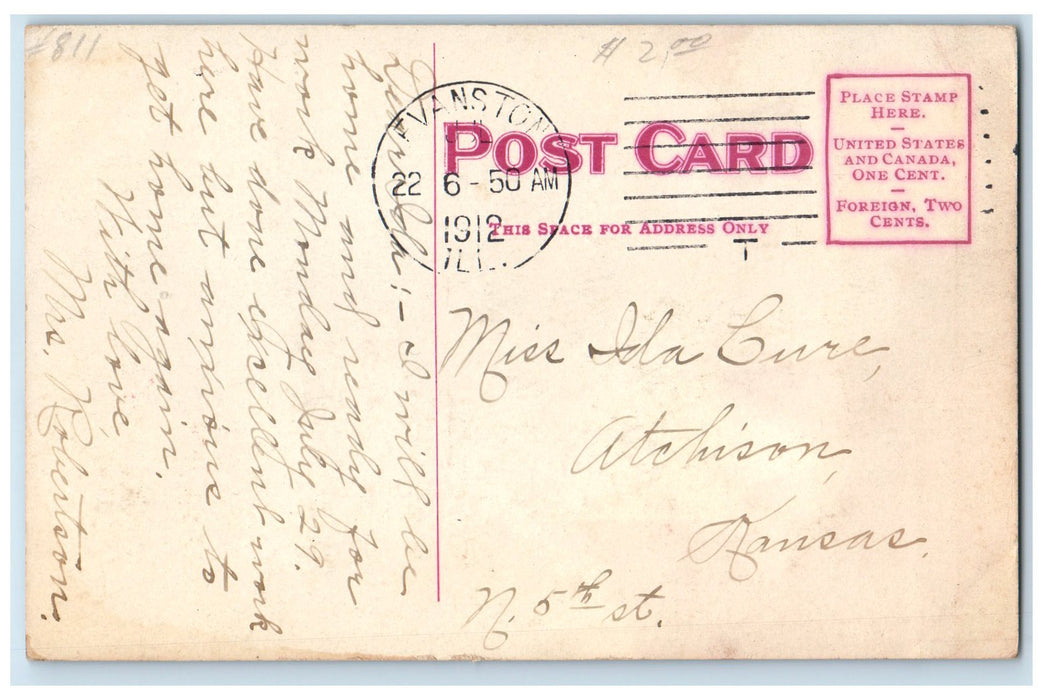 #811
$ 2.00
EVANSTON
JUL
22 6-50 AM
1912
ILL.
T
POST CARD
THIS SPACE FOR ADDRESS ONLY
PLACE STAMP
HERE.
—
UNITED STATES
AND CANADA,
ONE CENT.
—
FOREIGN, TWO
CENTS.
Dear Ida:- I will be
home and ready for
work Monday July 29.
Have done excellent work
here but anxious to
get home again.
With love,
Mrs. Robertson.
Miss Ida Cure,
Atchison,
Kansas.
N. 5th st.